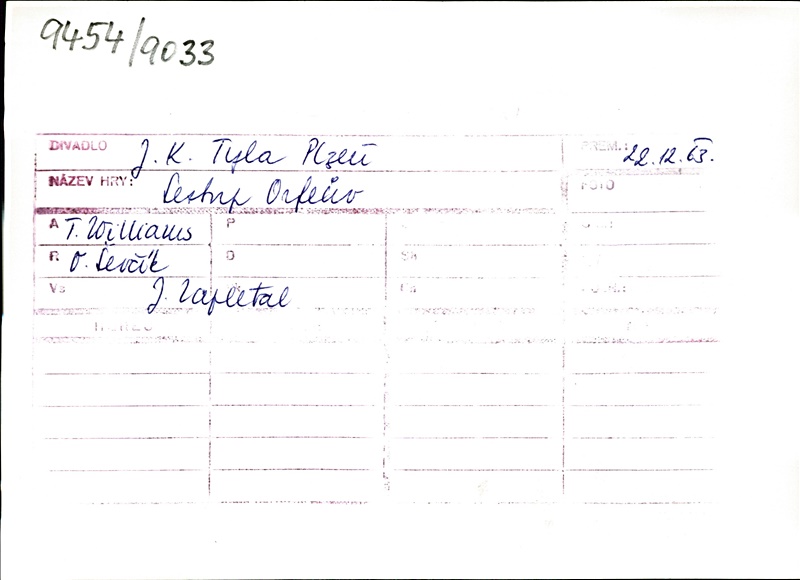 9454/9033
DIVADLO J. K. Tyla Plzeň PREM.: 22.12.63.
NÁZEV HRY: Sestup Orfeův FOTO
A T. Williams P
R O. Ševčík D Sk
Vs J. Zapletal